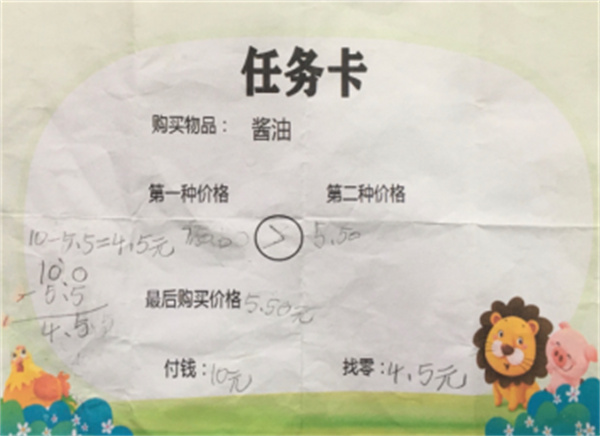 任务卡
购买物品： 酱油
第一种价格 第二种价格
10-5.5=4.5元 > 5.50
10.0
- 5.5
4.5
最后购买价格 5.50元
付钱：10元 找零：4.5元